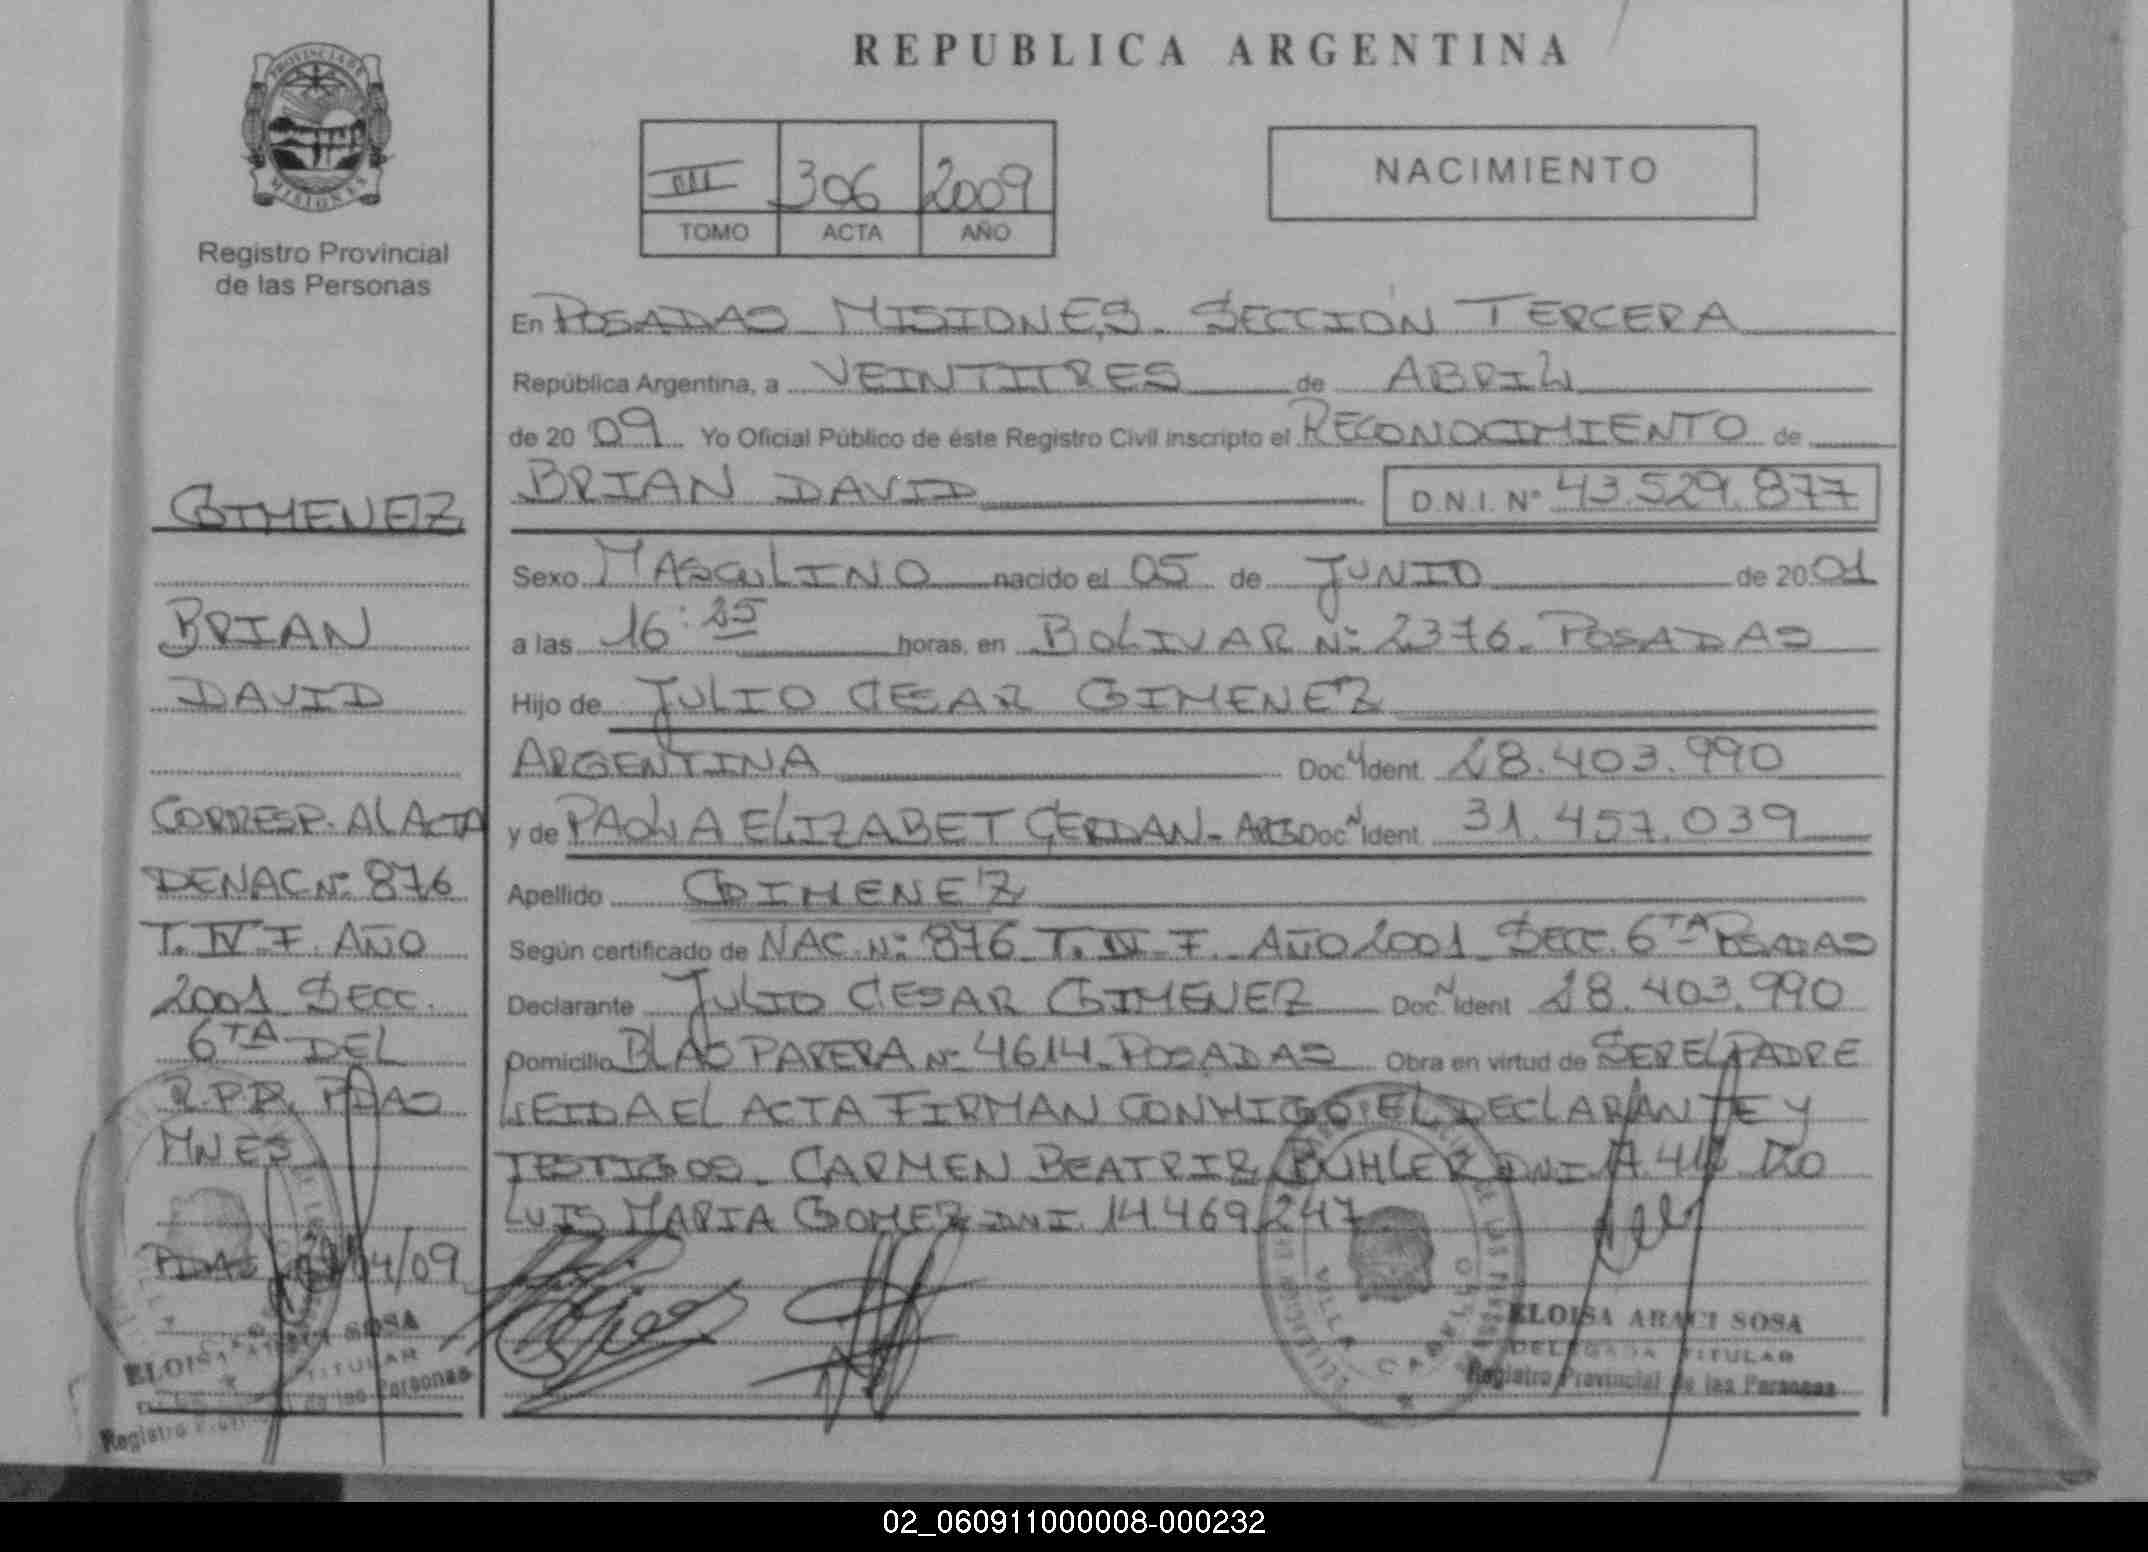 REPUBLICA ARGENTINA
PROVINCIA DE
MISIONES
Registro Provincial
de las Personas
III 306 2009
TOMO ACTA AÑO
NACIMIENTO
En POSADAS MISIONES. SECCION TERCERA
República Argentina, a VEINTITRES de ABRIL
de 20 09 Yo Oficial Público de éste Registro Civil inscripto el RECONOCIMIENTO de
BRIAN DAVID D.N.I. Nº 43.529.877
Sexo MASCULINO nacido el 05 de JUNIO de 20 01
a las 16:25 horas, en BOLIVAR Nº 2376. POSADAS
Hijo de JULIO CESAR GIMENEZ
ARGENTINA Doc. Ident. 28.403.990
y de PAOLA ELIZABET CERDAN - ARG Doc. Ident. 31.457.039
Apellido GIMENEZ
Según certificado de NAC. Nº 876 T. IV. F. AÑO 2001 SECC. 6TA POSADAS
Declarante JULIO CESAR GIMENEZ Doc. Ident 28.403.990
Domicilio BLAS PARERA Nº 4614. POSADAS Obra en virtud de SER EL PADRE
LEIDA EL ACTA FIRMAN CONMIGO: EL DECLARANTE Y
TESTIGOS. CARMEN BEATRIZ BUHLER DNI
LUIS MARIA GOMEZ DNI 14.469.247
ELOISA ARACI SOSA
DELEGADA TITULAR
Registro Provincial de las Personas
GIMENEZ
BRIAN
DAVID
CORRESP. AL ACTA
DE NAC Nº 876
T. IV. F. AÑO
2001 SECC.
6TA DEL
R.P.P. PDAS
MNES
PDAS /04/09
ELOISA ARACI SOSA
TITULAR
Registro de las Personas
VILLA CABELLO
02_060911000008-000232